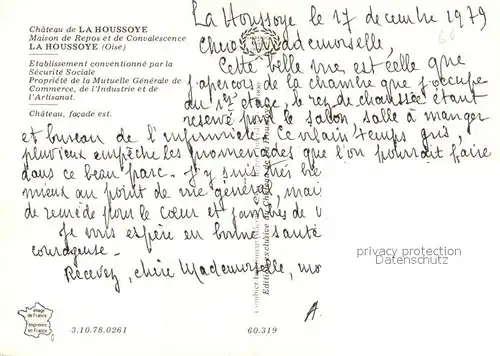 Château de LA HOUSSOYE
Maison de Repos et de Convalescence
LA HOUSSOYE (Oise)
Etablissement conventionné par la
Sécurité Sociale
Propriété de la Mutuelle Générale de
Commerce, de l'Industrie et de
l'Artisanat.
Château, façade est.
La Houssoye le 17 decembre 1979
Chère Mademoiselle,
Cette belle vue est celle que
j'aperçois de la chambre que j'occupe
au 1er étage, le rez de chaussée étant
reservé pour le salon, salle à manger
et bureau de l'infirmière. Ce vilain temps gris,
pluvieux empêche les promenades que l'on pourrait faire
dans ce beau parc. J'y suis très
mieux au point de vue général, mai
de remède pour le cœur et jambes de v
Je vous espère en bonne santé
courageuse.
Recevez, chère Mademoiselle, mo
A.
privacy protection
Datenschutz
Image
de France
Imprimée
en France
3.10.78.0261
60.319